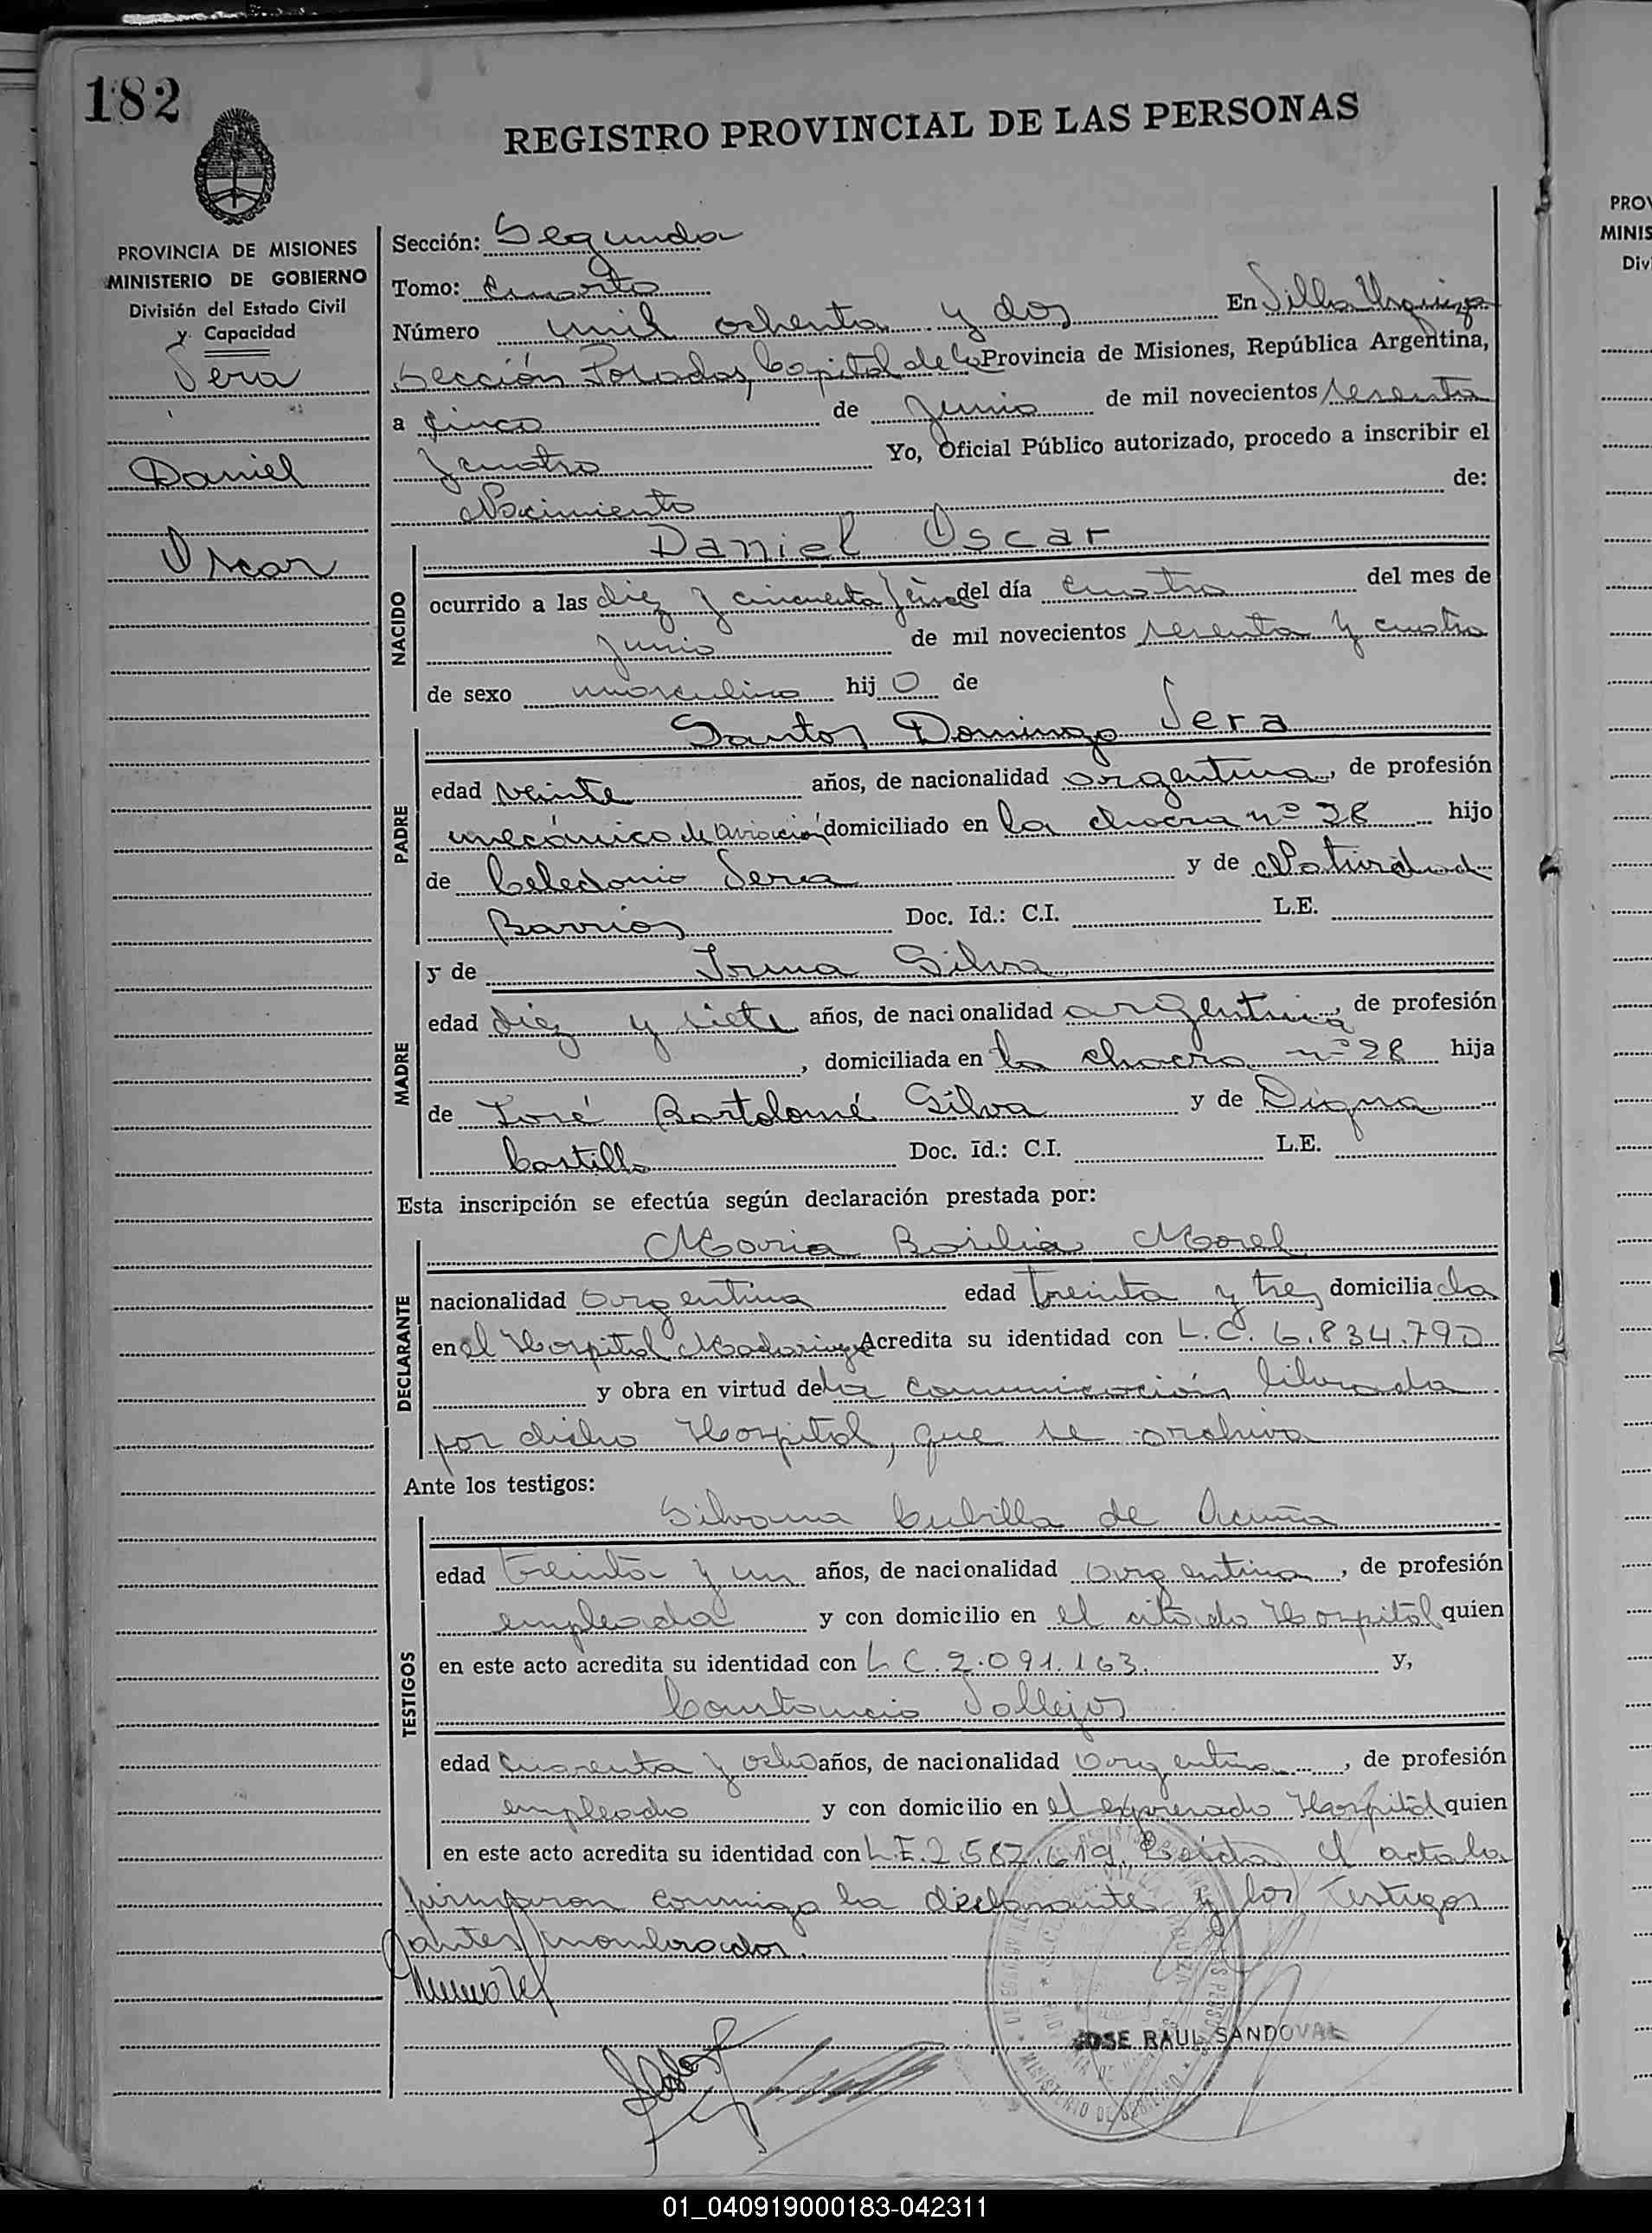 182
REGISTRO PROVINCIAL DE LAS PERSONAS
PROVINCIA DE MISIONES
MINISTERIO DE GOBIERNO
División del Estado Civil
y Capacidad
Vera
Daniel
Oscar
Sección: Segunda
Tomo: Cuarto
Número mil ochenta y dos En Villa Urquiza
Sección Posadas, Capital de la Provincia de Misiones, República Argentina,
a cinco de Junio de mil novecientos sesenta
y cuatro Yo, Oficial Público autorizado, procedo a inscribir el
Nacimiento de:
NACIDO
Daniel Oscar
ocurrido a las diez y cincuenta y cinco del día cuatro del mes de
Junio de mil novecientos sesenta y cuatro
de sexo masculino hijo de
PADRE
Santos Domingo Vera
edad veinte años, de nacionalidad argentina, de profesión
mecánico de aviación domiciliado en la chacra nº 28 hijo
de Celedonio Vera y de Natividad
Barrios Doc. Id.: C.I. L.E.
MADRE
y de Irma Silva
edad diez y siete años, de nacionalidad argentina, de profesión
, domiciliada en la chacra nº 28 hija
de José Bartolomé Silva y de Digna
Castillo Doc. Id.: C.I. L.E.
Esta inscripción se efectúa según declaración prestada por:
DECLARANTE
Maria Basilia Morel
nacionalidad argentina edad treinta y tres domiciliada
en el Hospital Madariaga Acredita su identidad con L.C. 6.834.790
y obra en virtud de la comunicación librada
por dicho Hospital, que se archiva
Ante los testigos:
TESTIGOS
Silvana Cubilla de Acuña
edad treinta y un años, de nacionalidad argentina, de profesión
empleada y con domicilio en el citado Hospital quien
en este acto acredita su identidad con L C. 2.091.163. y,
Constancio Vallejos
edad cuarenta y ocho años, de nacionalidad argentina, de profesión
empleado y con domicilio en el expresado Hospital quien
en este acto acredita su identidad con L.E. 2 587.619. Leída el acta la
firmaron conmigo la declarante y los testigos
antes nombrados.
JOSE RAUL SANDOVAL
PROV
MINIS
Div
01_040919000183-042311